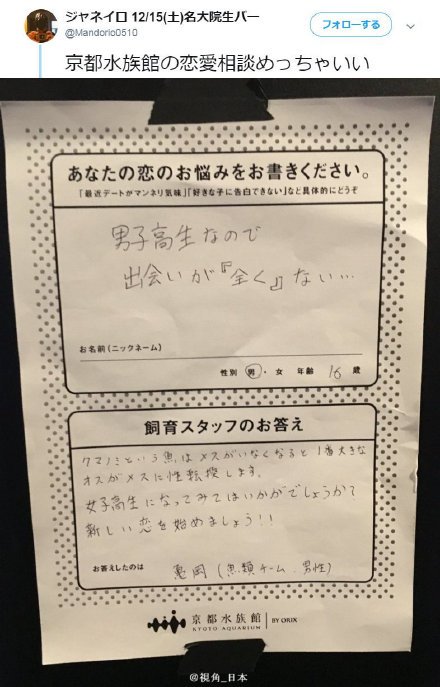 ジャネイロ 12/15(土)名大院生バー
@Mandorio0510
フォローする
京都水族館の恋愛相談めっちゃいい
あなたの恋のお悩みをお書きください。
「最近デートがマンネリ気味」「好きな子に告白できない」など具体的にどうぞ
男子高生なので
出会いが『全く』ない…
お名前(ニックネーム)
性別 男・女 年齢 16 歳
飼育スタッフのお答え
クマノミという魚はメスがいなくなると1番大きな
オスがメスに性転換します。
女子高生になってみてはいかがでしょうか?
新しい恋を始めましょう!!
お答えしたのは 恵岡(魚類チーム 男性)
京都水族館 BY ORIX
KYOTO AQUARIUM
@視角_日本